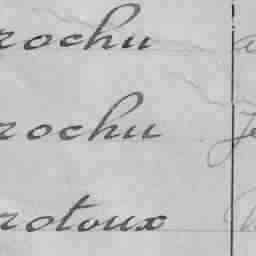 rochu
rochu
rotoux